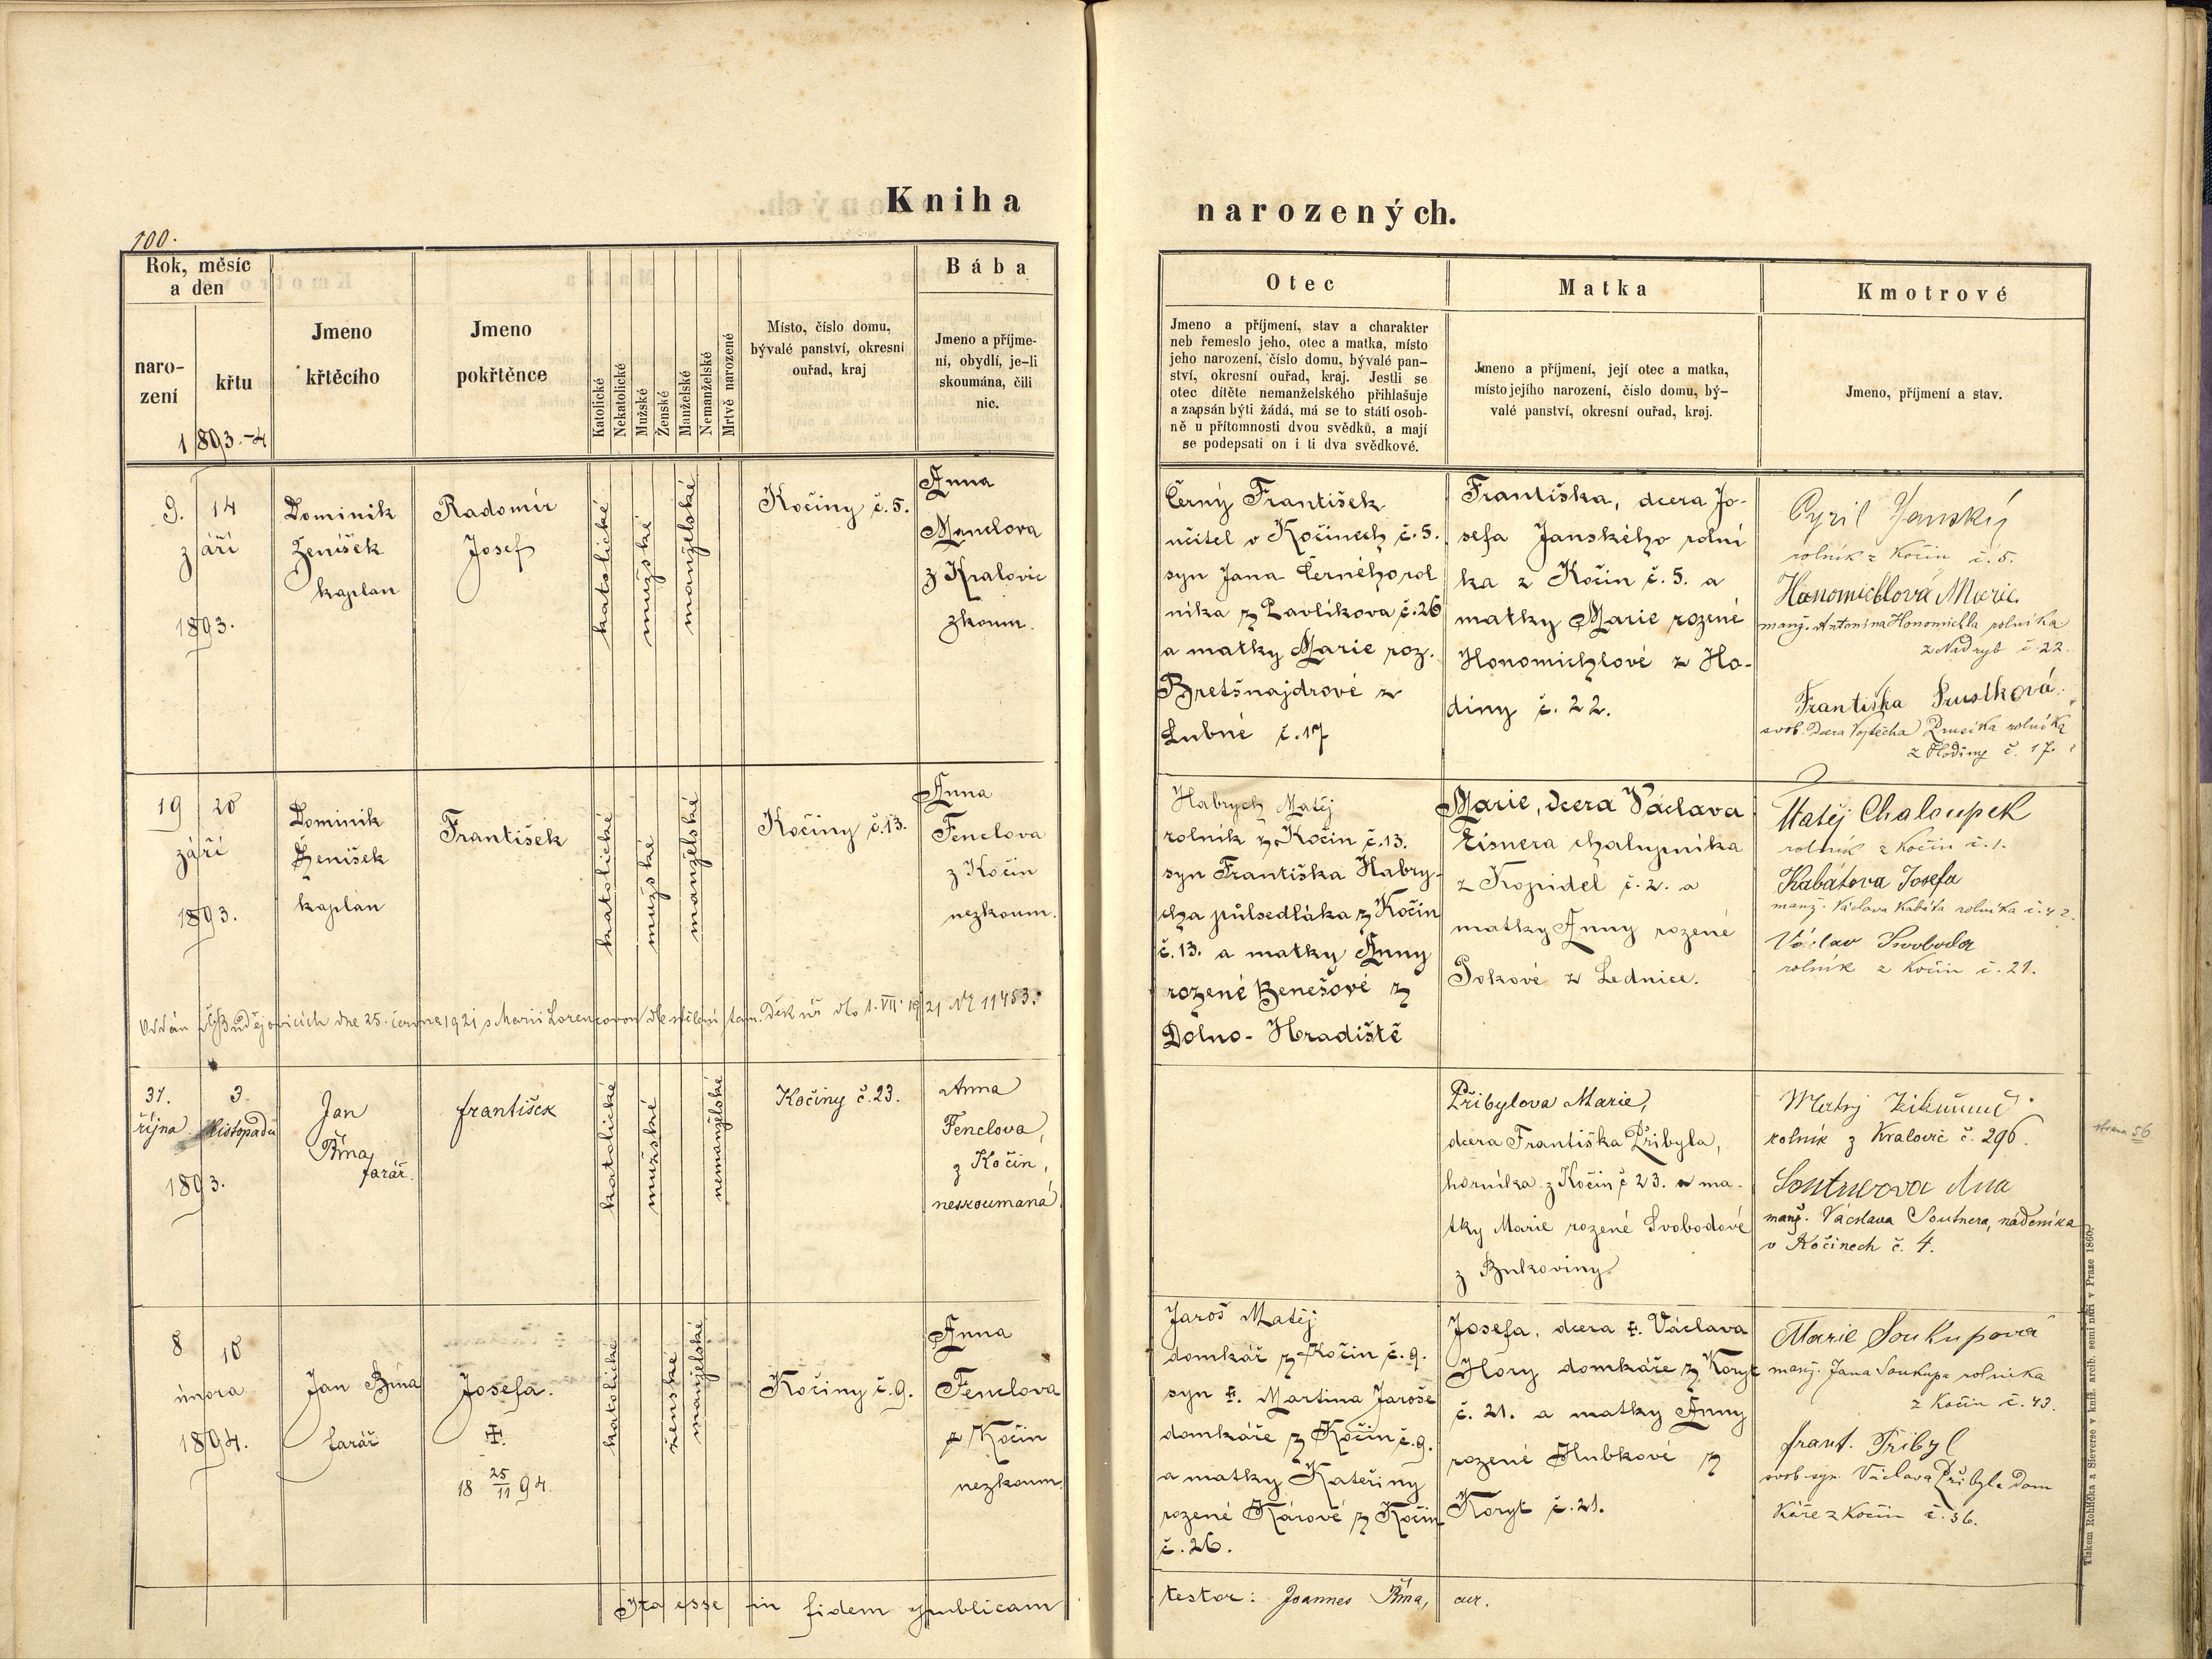 Kniha
narozených.
100.
Rok, měsíc
a den
naro-
zení
křtu
1893.-4
Jmeno
křtěcího
Jmeno
pokřtěnce
Katolické
Nekatolické
Mužské
Ženské
Manželské
Nemanželské
Mrtvě narozené
Místo, číslo domu,
bývalé panství, okresní
ouřad, kraj
Bába
Jmeno a příjme-
ní, obydlí, je-li
skoumána, čili
nic.
Otec
Jmeno a příjmení, stav a charakter
neb řemeslo jeho, otec a matka, místo
jeho narození, číslo domu, bývalé pan-
ství, okresní ouřad, kraj. Jestli se
otec dítěte nemanželského přihlašuje
a zapsán býti žádá, má se to státi osob-
ně u přítomnosti dvou svědků, a mají
se podepsati on i ti dva svědkové.
Matka
Jmeno a příjmení, její otec a matka,
místo jejího narození, číslo domu, bý-
valé panství, okresní ouřad, kraj.
Kmotrové
Jmeno, příjmení a stav.
9. 14
září
1893.
Dominik
Ženíšek
kaplan
Radomír
Josef
katolické
mužské
manželské
Kočiny č. 5.
Anna
Menclova
z Kralovic
zkoum.
Černý František
učitel v Kočinech č. 5.
syn Jana Černého rol
níka z Pavlíkova č. 26
a matky Marie roz.
Bretšnajdrové z
Lubné č. 17
Františka, dcera Jo-
sefa Janského rolní
ka z Kočin č. 5. a
matky Marie rozené
Honomichlové z Ho-
diny č. 22.
Cyril Janský
rolník z Kočin č. 5.
Honomichlová Marie
manž. Antonína Honomichla rolníka
z Nadryb č. 22.
Františka Prusíková
svob. dcera Vojtěcha Prusíka rolníka
z Hodiny č. 17.
19 20
září
1893.
Dominik
Ženíšek
kaplan
František
katolické
mužské
manželské
Kočiny č. 13.
Anna
Fenclova
z Kočin
nezkoum.
Habrych Matěj
rolník z Kočin č. 13.
syn Františka Habry-
cha půlsedláka z Kočin
č. 13. a matky Anny
rozené Benešové z
Dolno-Hradiště
Marie, dcera Václava
Eisnera chalupníka
z Kopidel č. 2. a
matky Anny rozené
Pokové z Lednice.
Matěj Chaloupek
rolník z Kočin č. 1.
Kabátova Josefa
manž. Václava Kabáta rolníka č. 42.
Václav Svoboda
rolník z Kočin č. 21.
Oddán v Č. Budějovicích dne 25. června 1921 s Marií Lorencovou dle sdělení tam. Děk. úř. dto 1. VII. 1921 Nr 11453.
31. 3.
října listopadu
1893.
Jan
Bína
farář.
František
katolické
mužské
nemanželské
Kočiny č. 23.
Anna
Fenclova,
z Kočin,
neskoumaná
Přibylova Marie,
dcera Františka Přibyla,
horníka z Kočin č 23. a ma-
tky Marie rozené Svobodové
z Bukoviny
rolník z Kralovic č. 296.
Soutnerova Ana
manž. Václava Soutnera, nádeníka
v Kočinech č. 4.
strana 56
8 10
února
1894.
Jan Bína
farář
Josefa.
✠
18 25/11 94.
katolické
ženské
manželské
Kočiny č. 9.
Anna
Fenclova
z Kočin
nezkoum.
Jaroš Matěj
domkář z Kočin č. 9.
syn ✠. Martina Jaroše
domkáře z Kočin č. 9.
a matky Kateřiny
rozené Kárové z Kočin
č. 26.
Josefa, dcera ✠. Václava
Hory domkáře z Koryt
č. 21. a matky Anny
rozené Hubkové z
Koryt č. 21.
Marie Soukupová
manž. Jana Soukupa rolníka
z Kočin č. 43.
Frant. Přibyl
svob. syn Václava Přibyla dom
káře z Kočin č. 36.
Ita esse in fidem publicam
testor: Joannes Bína, cur.
Tiskem Rohlíčka a Sieverse v kníž. arcib. semináři v Praze 1860.